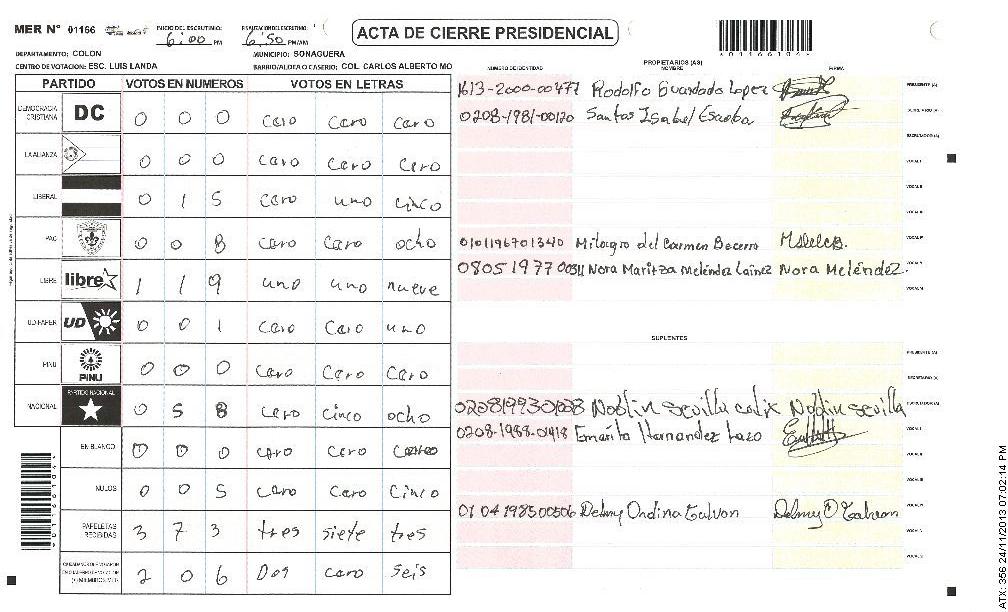 MER N° 01166
INICIO DEL ESCRUTINIO: 6:00 PM
FINALIZACION DEL ESCRUTINIO: 6:50 PM/AM
ACTA DE CIERRE PRESIDENCIAL
DEPARTAMENTO: COLON
MUNICIPIO: SONAGUERA
CENTRO DE VOTACION: ESC. LUIS LANDA
BARRIO/ALDEA O CASERIO: COL. CARLOS ALBERTO MO
PARTIDO VOTOS EN NUMEROS VOTOS EN LETRAS
DEMOCRACIA CRISTIANA DC 0 0 0 Caro Caro Caro
LA ALIANZA 0 0 0 Caro Caro Cero
LIBERAL 0 1 5 Caro uno cinco
PAC 0 0 8 Caro Caro ocho
LIBRE libre 1 1 9 uno uno nueve
UD-FAPER UD 0 0 1 Caro Caro uno
PINU PINU 0 0 0 Caro Caro Caro
NACIONAL PARTIDO NACIONAL 0 5 8 Caro Cinco ocho
EN BLANCO 0 0 0 Caro Cero
NULOS 0 0 5 Caro Caro Cinco
PAPELETAS RECIBIDAS 3 7 3 tres siete tres
2 0 6 Dos Caro Seis
PROPIETARIOS (AS)
NUMERO DE IDENTIDAD NOMBRE FIRMA
1613-2000-00477 Rodolfo Guardado Lopez PRESIDENTE (A)
0208-1981-00120 Santos Isabel Escoba
ESCRUTADOR (A)
VOCAL I
VOCAL II
VOCAL III
0101196701340 Milagro del Carmen Becerra
0805197700311 Nora Maritza Melénda Laínez Nora Meléndez
SUPLENTES
PRESIDENTE (A)
SECRETARIO (A)
Noblin Sevilla Nodlin Sevilla
0208-1988-01418 Emerito Hernandez Lazo
0104198500506 Delmy Ondina Galvon Delmy O Galvon
ATX: 356 24/11/2013 07:02:14 PM